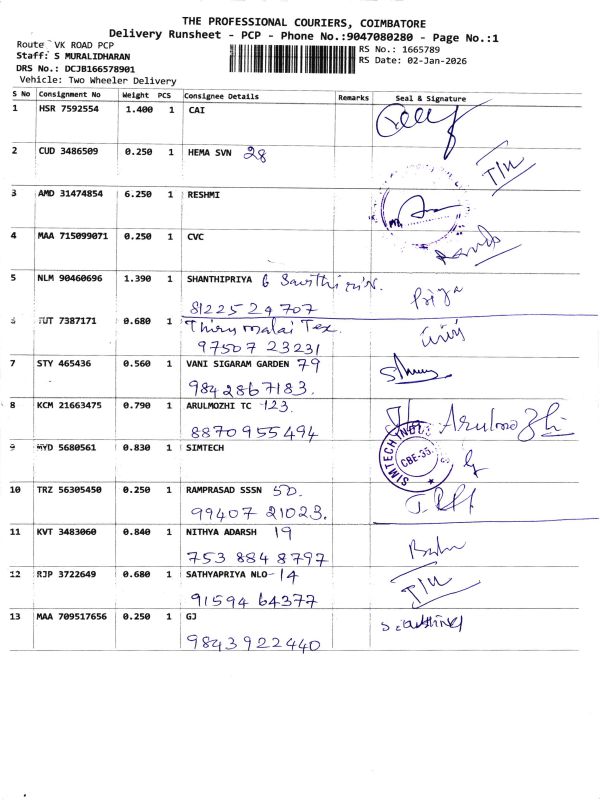 THE PROFESSIONAL COURIERS, COIMBATORE
Delivery Runsheet - PCP - Phone No.:9047080280 - Page No.:1
Route VK ROAD PCP
Staff: S MURALIDHARAN
DRS No.: DCJB166578901
Vehicle: Two Wheeler Delivery
RS No.: 1665789
RS Date: 02-Jan-2026
S No Consignment No Weight PCS Consignee Details Remarks Seal & Signature
1 HSR 7592554 1.400 1 CAI
2 CUD 3486509 0.250 1 HEMA SVN 28
3 AMD 31474854 6.250 1 RESHMI
4 MAA 715099071 0.250 1 CVC
5 NLM 90460696 1.390 1 SHANTHIPRIYA 6 Priya
8122529707
6 TUT 7387171 0.680 1 Thirumalai Tex.
97507 23231
7 STY 465436 0.560 1 VANI SIGARAM GARDEN 79
9842867183.
8 KCM 21663475 0.790 1 ARULMOZHI TC 123. Arulmozhi
8870955494
9 MYD 5680561 0.830 1 SIMTECH SIMTECH INDUS CBE-35
10 TRZ 56305450 0.250 1 RAMPRASAD SSSN 5D.
99407 21023.
11 KVT 3483060 0.840 1 NITHYA ADARSH 19
753 884 8797
12 RJP 3722649 0.680 1 SATHYAPRIYA NLO-14
91594 64377
13 MAA 709517656 0.250 1 GJ
9843922440